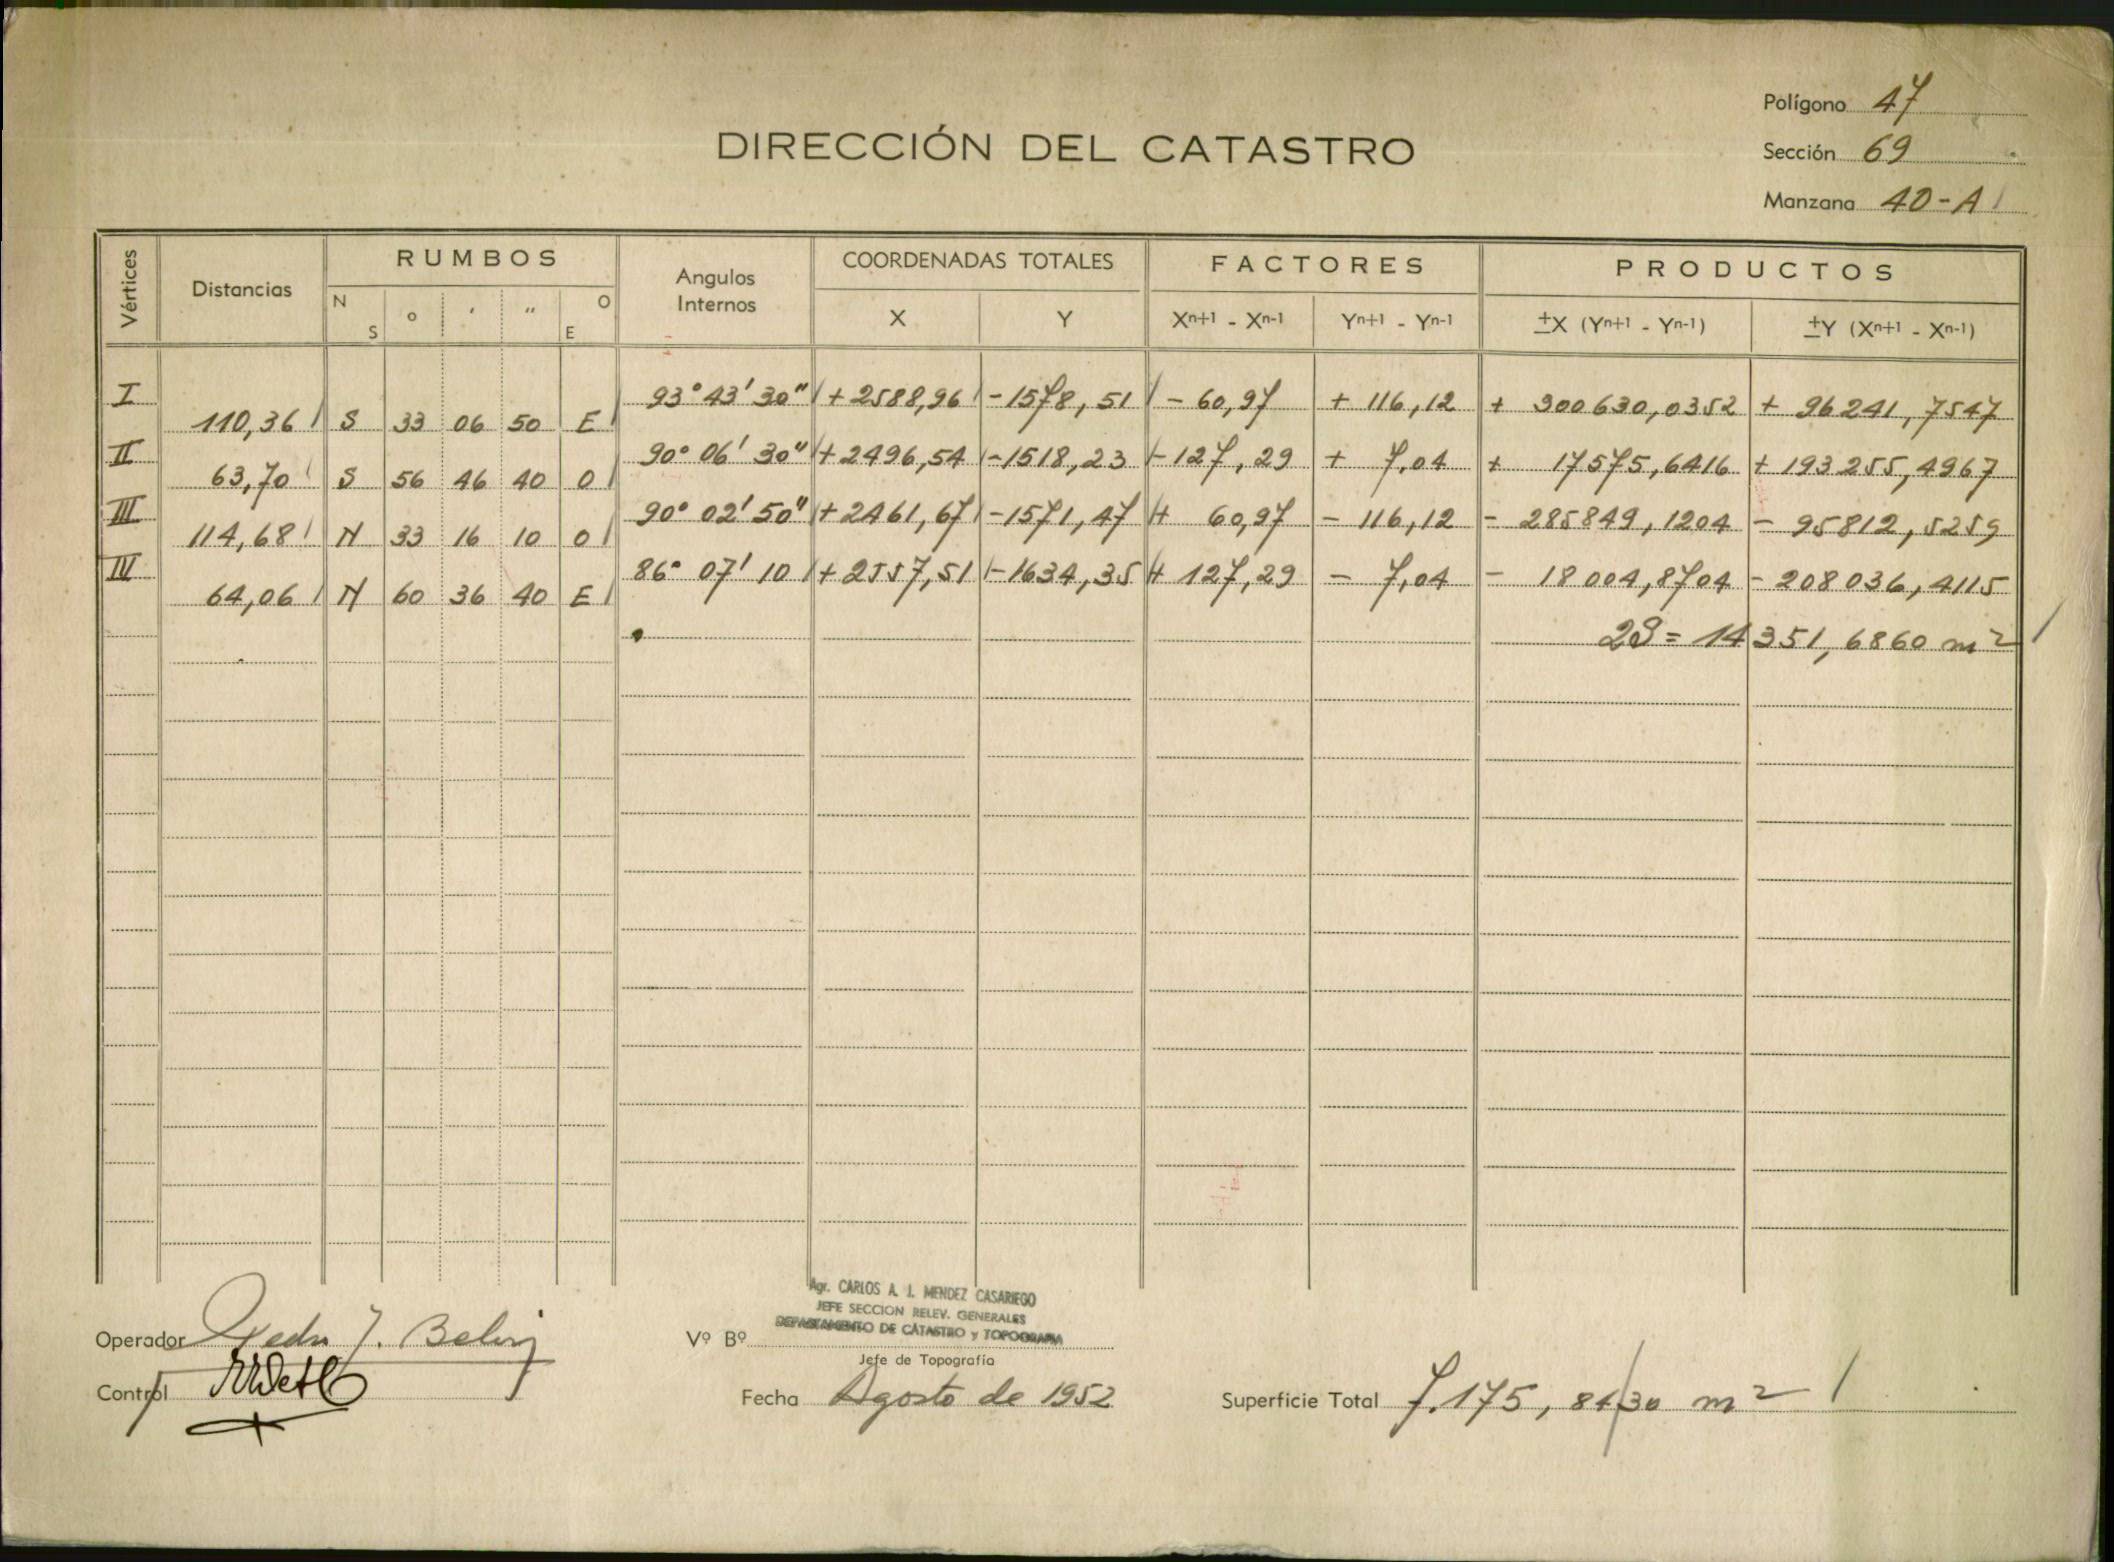 Polígono 47
DIRECCIÓN DEL CATASTRO
Sección 69
Manzana 40-A
Vértices Distancias RUMBOS Angulos Internos COORDENADAS TOTALES FACTORES PRODUCTOS
N S ° ' " O E X Y Xn+1 - Xn-1 Yn+1 - Yn-1 ±X (Yn+1 - Yn-1) ±Y (Xn+1 - Xn-1)
I 93° 43' 30" +2588,96 -1578,51 -60,97 +116,12 + 300630,0352 + 96241,7547
110,36 S 33 06 50 E
II 90° 06' 30" +2496,54 -1518,23 -127,29 + 7,04 + 17575,6416 + 193255,4967
63,70 S 56 46 40 O
III 90° 02' 50" +2461,67 -1571,47 + 60,97 - 116,12 - 285849,1204 - 95812,5259
114,68 N 33 16 10 O
IV 86° 07' 10 +2557,51 -1634,35 + 127,29 - 7,04 - 18004,8704 - 208036,4115
64,06 N 60 36 40 E
2S = 14351,6860 m2
Agr. CARLOS A. J. MENDEZ CASARIEGO
JEFE SECCION RELEV. GENERALES
DEPARTAMENTO DE CATASTRO y TOPOGRAFIA
Operador Pedro J. Vº Bº
Jefe de Topografía
Control Fecha Agosto de 1952 Superficie Total 7.175,8430 m2